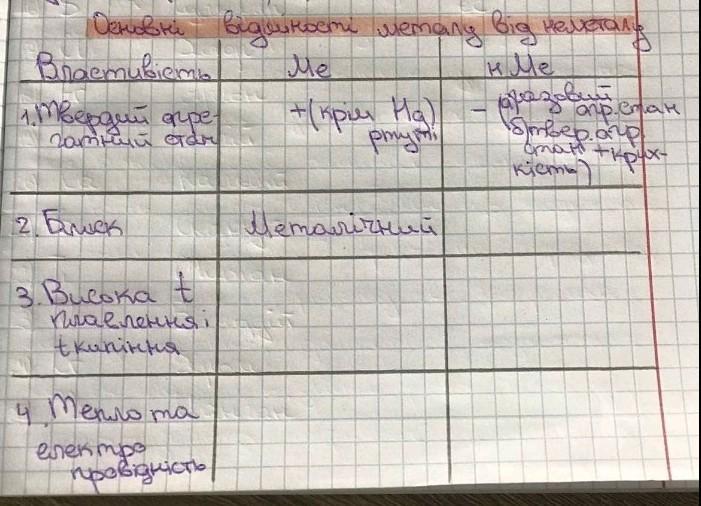 Основні відмінності металу від неметалу
Властивість Ме нМе
1. Твердий агре-
гатний стан
+(крім Hg)
ртуті
- (а) газовий
агр. стан
(б) твер. агр.
стан + крих-
кість)
2. Блиск Металічний
3. Висока t
плавлення і
t кипіння
4. Тепло та
електро
провідність